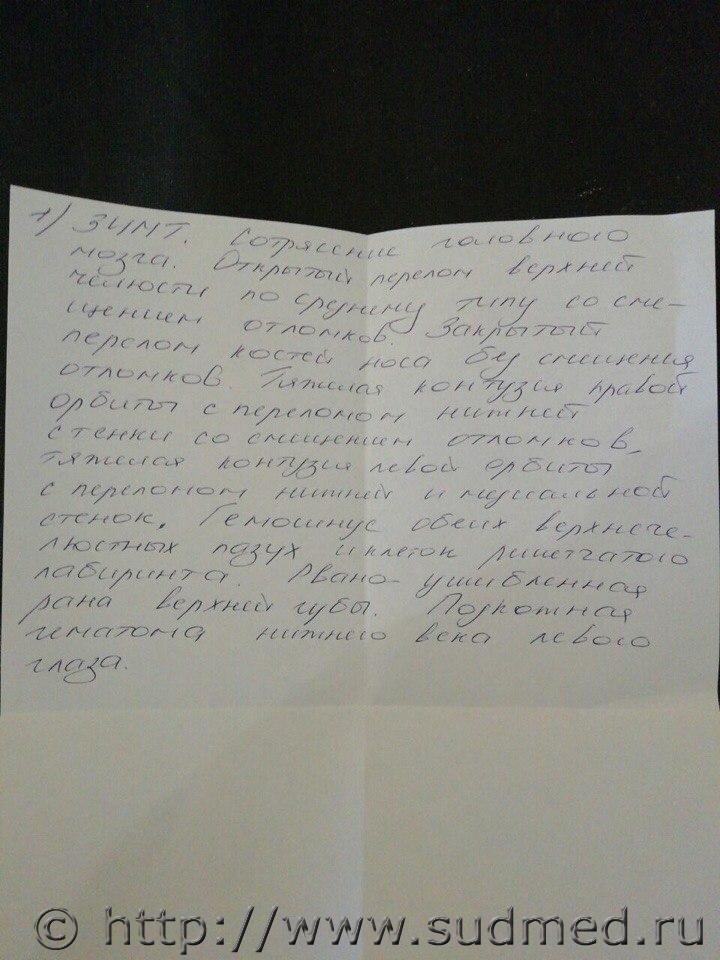 1) ЗЧМТ. Сотрясение головного
мозга. Открытый перелом верхней
челюсти по среднему типу со сме-
щением отломков. Закрытый
перелом костей носа без смещения
отломков. Тяжелая контузия правой
орбиты с переломом нижней
стенки со смещением отломков,
тяжелая контузия левой орбиты
с переломом нижней и медиальной
стенок. Гемосинус обеих верхнече-
люстных пазух и клеток решетчатого
лабиринта. Рвано-ушибленная
рана верхней губы. Подкожная
гематома нижнего века левого
глаза.
© http://www.sudmed.ru